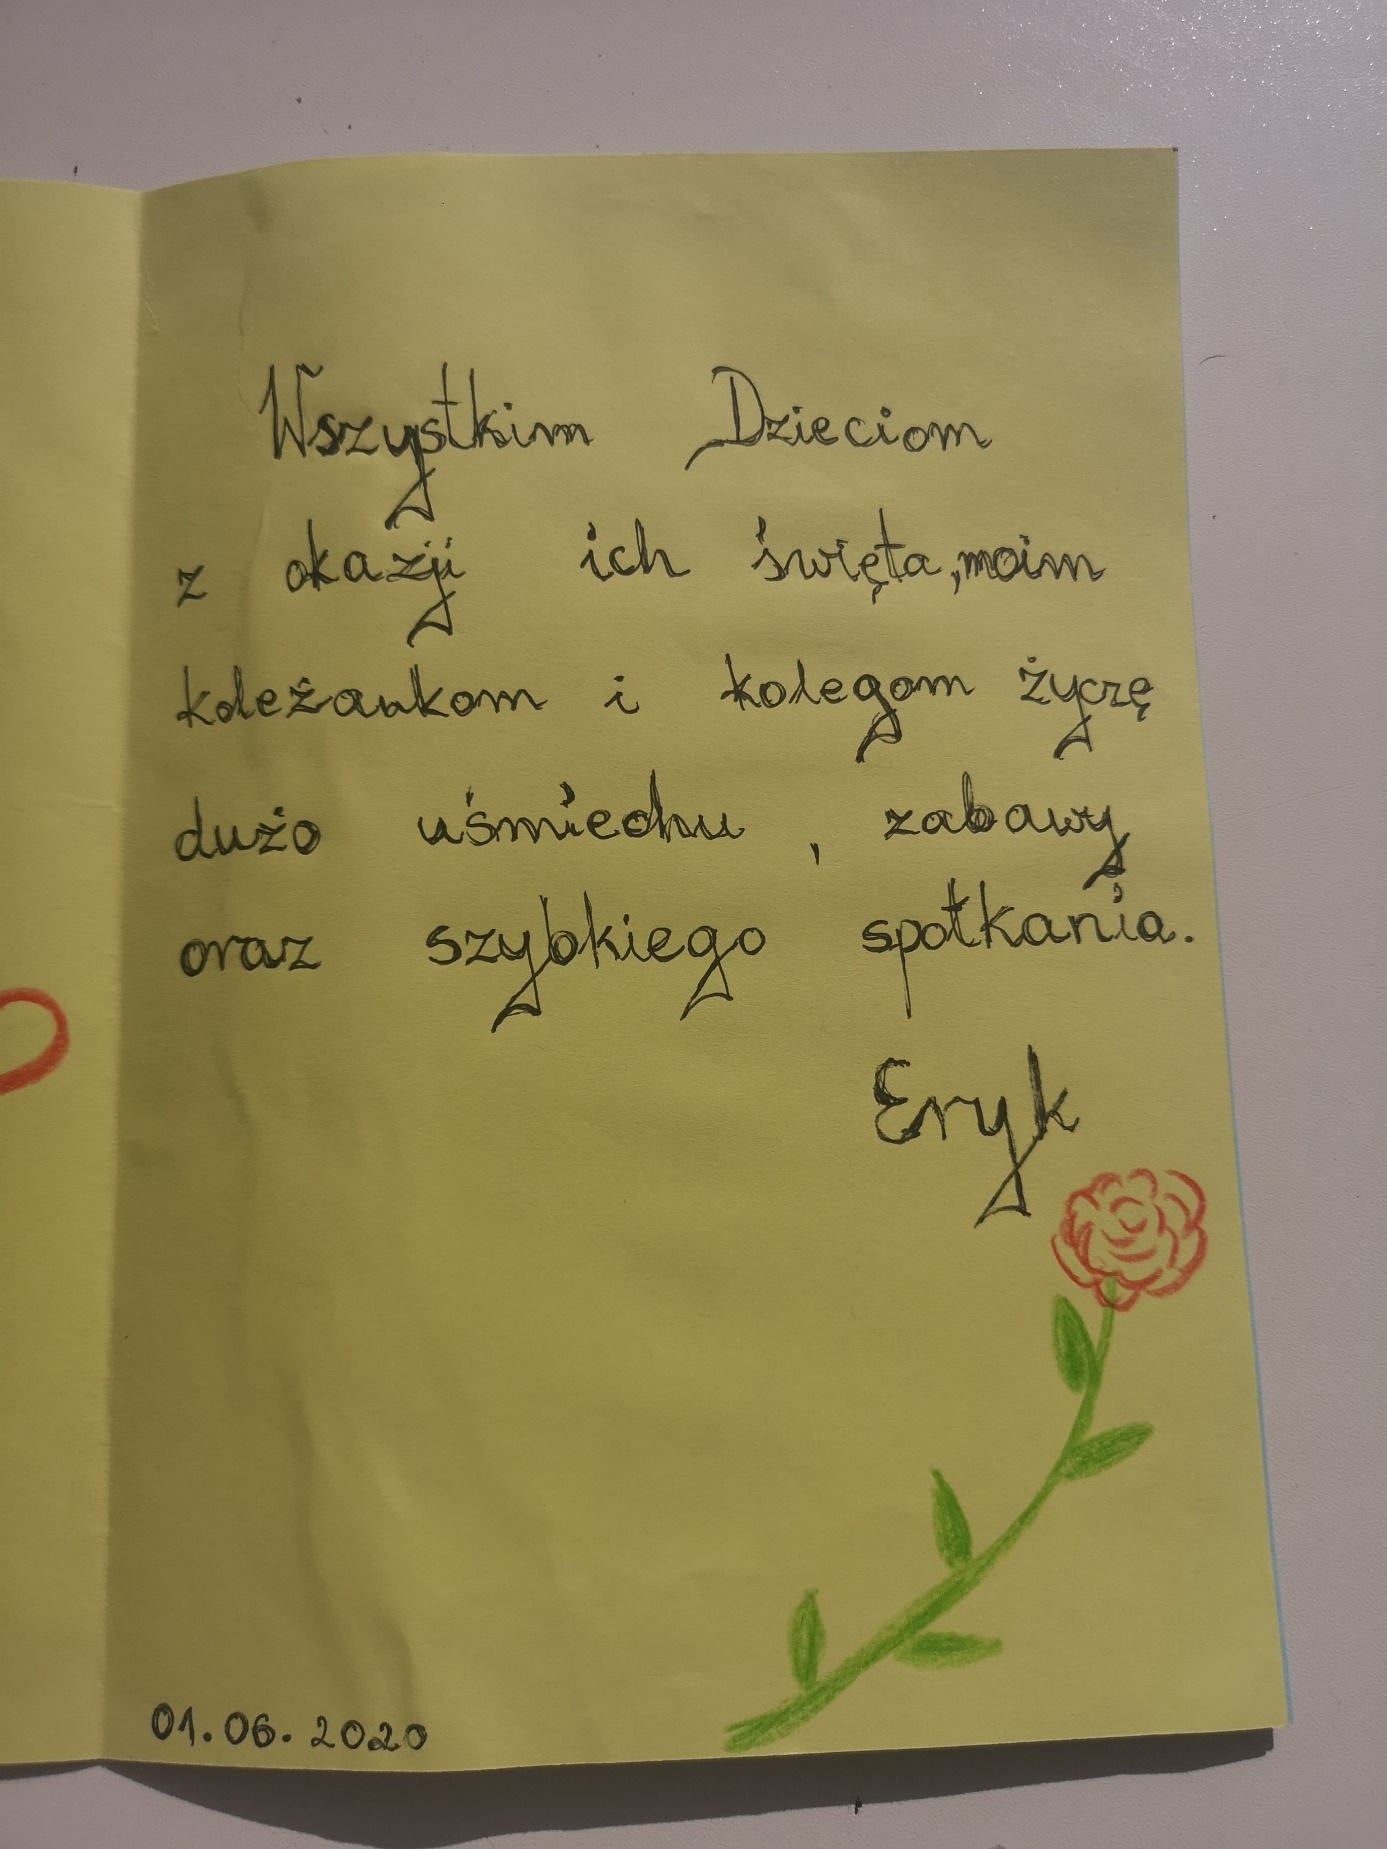 Wszystkim Dzieciom
z okazji ich święta, moim
koleżankom i kolegom życzę
dużo uśmiechu, zabawy
oraz szybkiego spotkania.
Eryk
01.06.2020